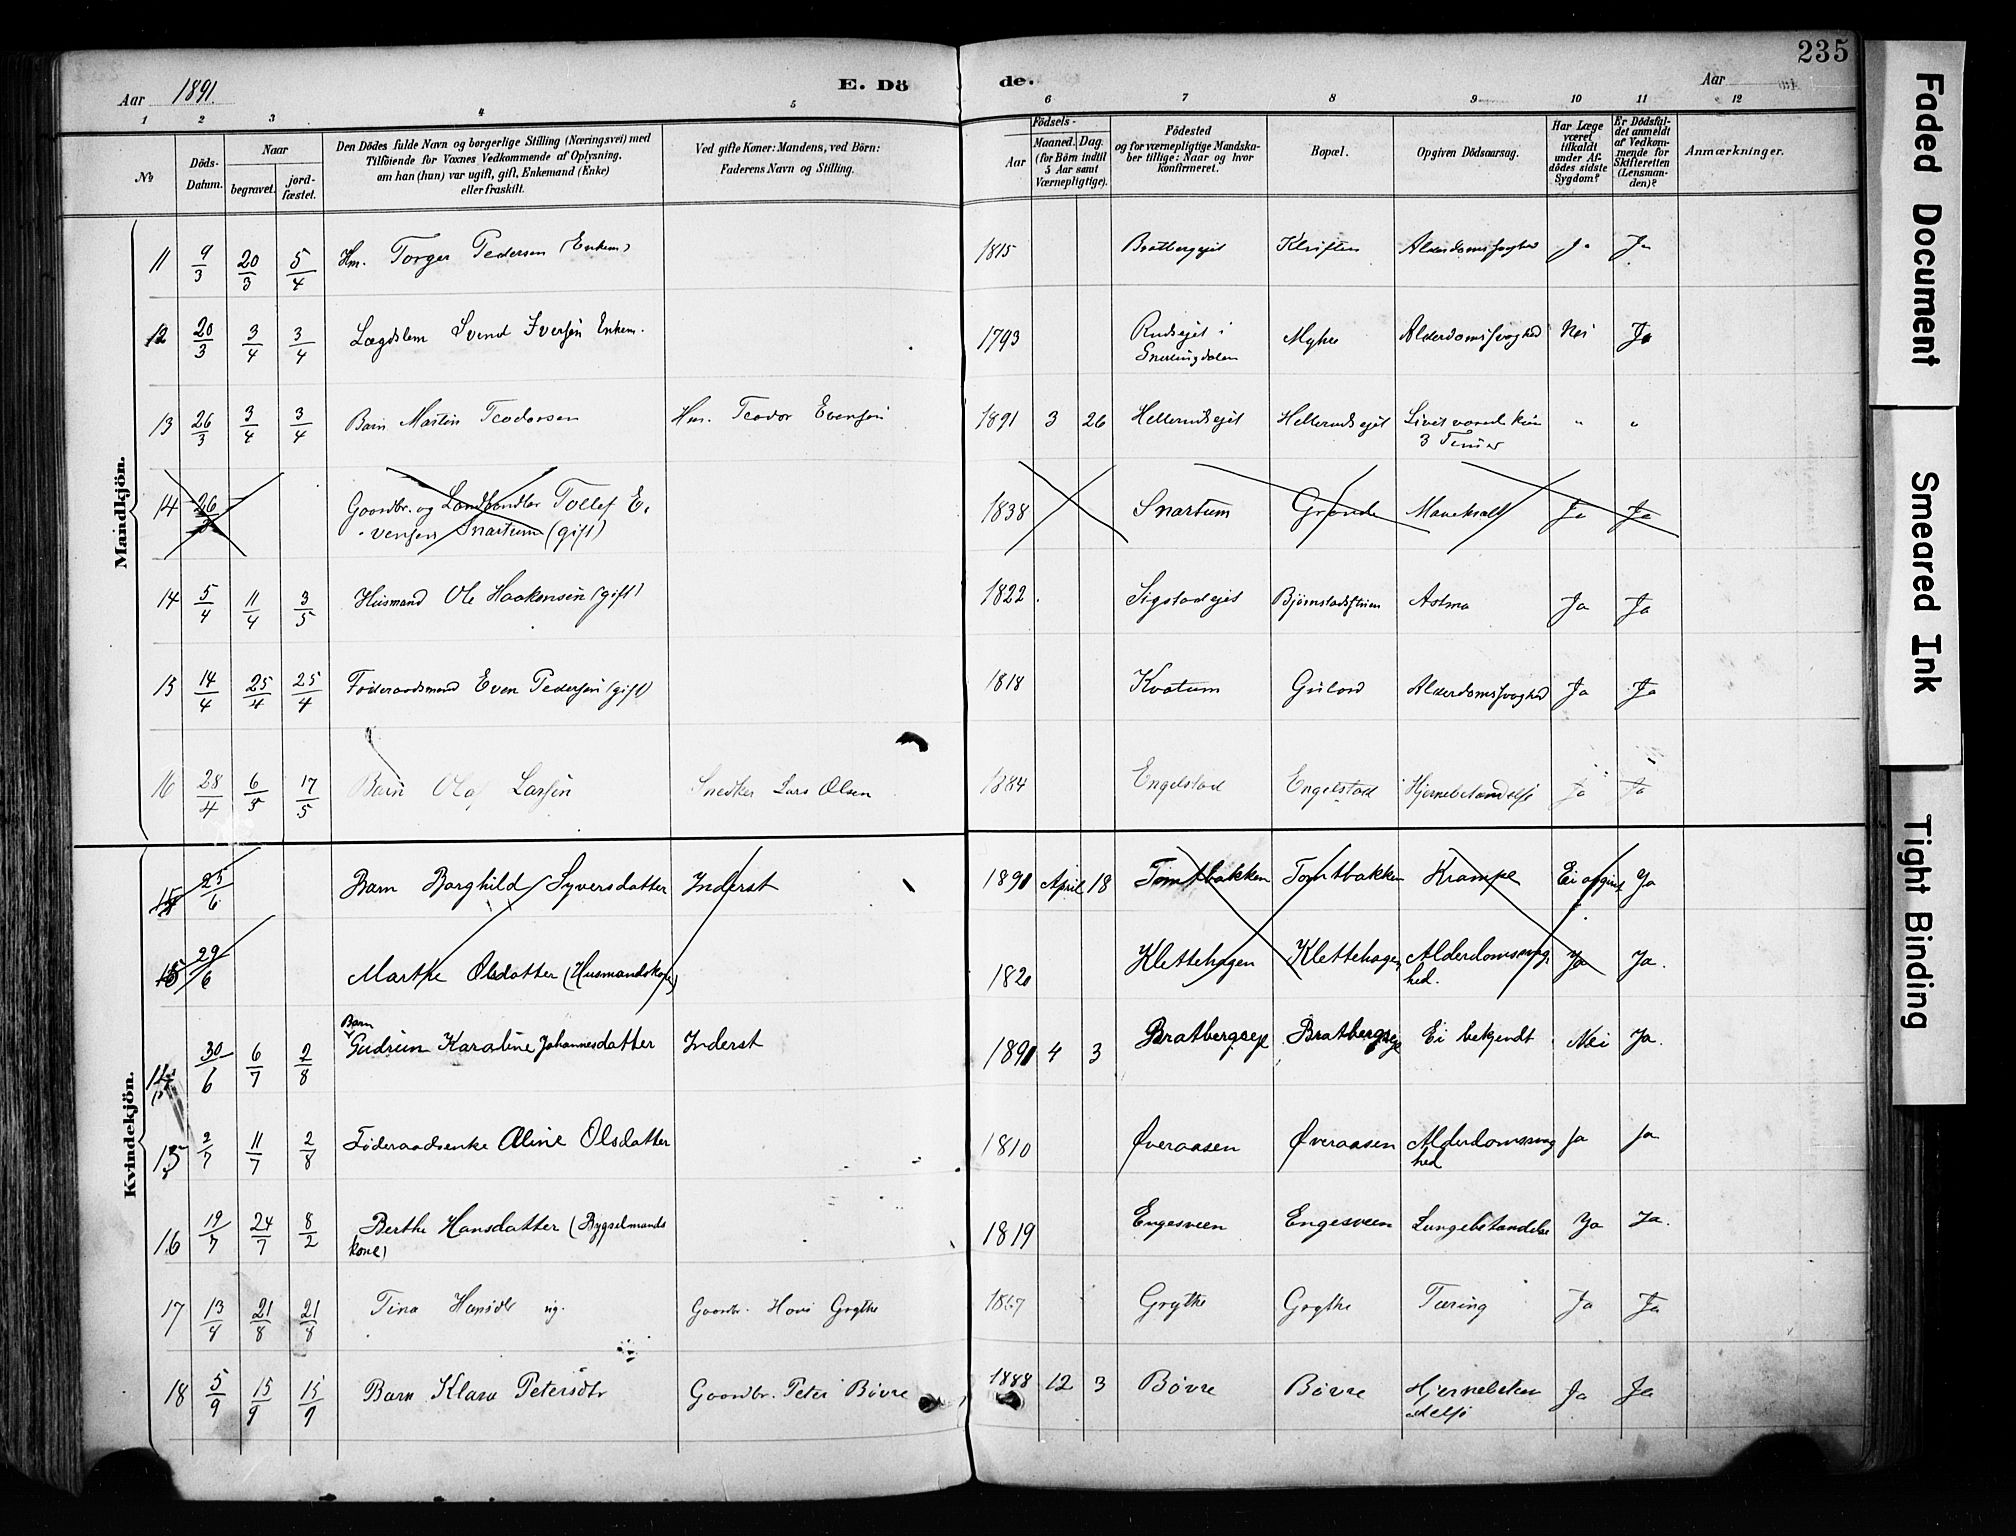 235
Aar 1891.
E. Dö
de.
Aar
1 2 3 4 5 6 7 8 9 10 11 12
No
Döds-
Datum.
Naar
begravet.
jord-
fæstet.
Den Dödes fulde Navn og borgerlige Stilling (Næringsvei) med
Tilföiende for Voxnes Vedkommende af Oplysning,
om han (hun) var ugift, gift, Enkemand (Enke)
eller fraskilt.
Ved gifte Koner: Mandens, ved Börn:
Faderens Navn og Stilling.
Födsels-
Aar
Maaned. Dag.
(for Börn indtil
5 Aar samt
Værnepligtige).
Födested
og for værnepligtige Mandska-
ber tillige: Naar og hvor
konfirmeret.
Bopæl.
Opgiven Dödsaarsag.
Har Læge
været
tilkaldt
under Af-
dödes sidste
Sygdom?
Er Dödsfal-
det anmeldt
af Vedkom-
mende for
Skifteretten
(Lensman-
den)?
Anmærkninger.
Mandkjön.
11 9/3 20/3 5/4 Hm. Torger Pedersen (Enkem) 1815 Bratbergejet Kleiften Alderdomssvaghed Ja Ja
12 20/3 3/4 3/4 Lægdslem Svend Iversen Enkem. 1793 Rudsejet i Myhre Alderdomssvaghed Nei Ja
Snertingdalen
13 26/3 3/4 3/4 Barn Martin Teodorsen Hm. Teodor Evensen 1891 3 26 Hellerudsejet Hellerudsejet Livet varede kun " "
3 Timer
14 26/3 Gaardbr. og Landhandler Tollef E- 1838 Snartum Grande Ja Ja
vensen Snartum (gift)
14 5/4 11/4 3/5 Husmand Ole Haakensen (gift) 1822. Sigstadejet Bjørnstadstuen Astma Ja Ja
15 14/4 25/4 25/4 Føderaadsmand Even Pedersen (gift) 1818 Kvatum Gulord Alderdomssvaghed Ja Ja
16 28/4 6/5 17/5 Barn Olaf Larsen Snedker Lars Olsen 1884 Engelstad Engelstad Hjernebetændelse Ja Ja
Kvindekjön.
15 25/6 Barn Borghild Syversdatter Inderst 1891 April 18 Tomtbakken Tomtbakken Krampe Ei Ja
15 29/6 Marthe Olsdatter (Husmandskone) 1820 Klettehagen Klettehagen Alderdomssvag- Ja Ja.
hed.
Barn
14 30/6 6/7 2/8 Gudrun Karoline Johannesdatter Inderst 1891 4 3 Bratbergseje Bratbergseje Ei bekjendt Nei Ja.
15 2/7 11/7 2/8 Føderaadsenke Oline Olsdatter 1810 Øveraasen Øveraasen Alderdomssvag Ja Ja
hed
16 19/7 24/7 8/2 Berthe Hansdatter (Bygselmands 1819 Engesveen Engesveen Lungebetændelse Ja Ja.
kone)
17 13/4 21/8 21/8 Tina Hansdtr ug. Gaardbr. Hans Grythe 1867 Grythe Grythe Tæring Ja Ja
18 5/9 15/9 15/9 Barn Klara Petersdtr Gaardbr. Peter Bøvre 1888 12 3 Bøvre Bøvre Hjernebetæn Ja Ja
delse
Faded Document
Smeared Ink
Tight Binding